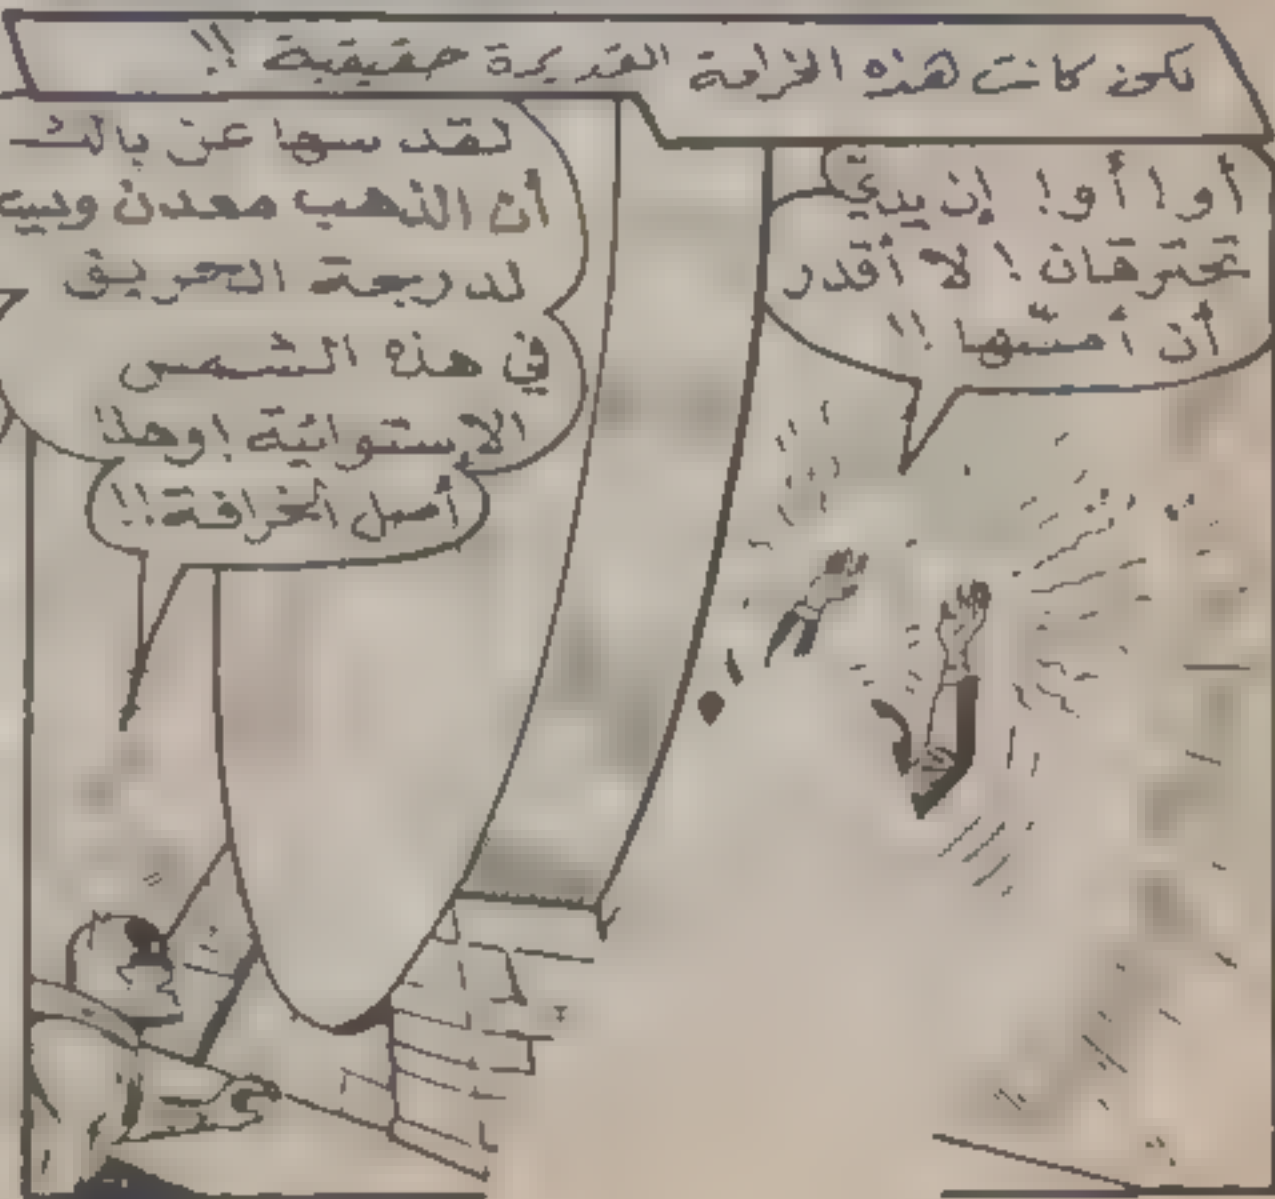 لكن كانت هذه الخرافة القديمة حقيقية !!
أو ! أو ! إن يديّ
تحترقان ! لا أقدر
أن أمسّها !!
لقد سها عن بالك
أن الذهب معدن
لدرجة الحريق
في هذه الشمس
الاستوائية ! وهذا
أصل الخرافة !!